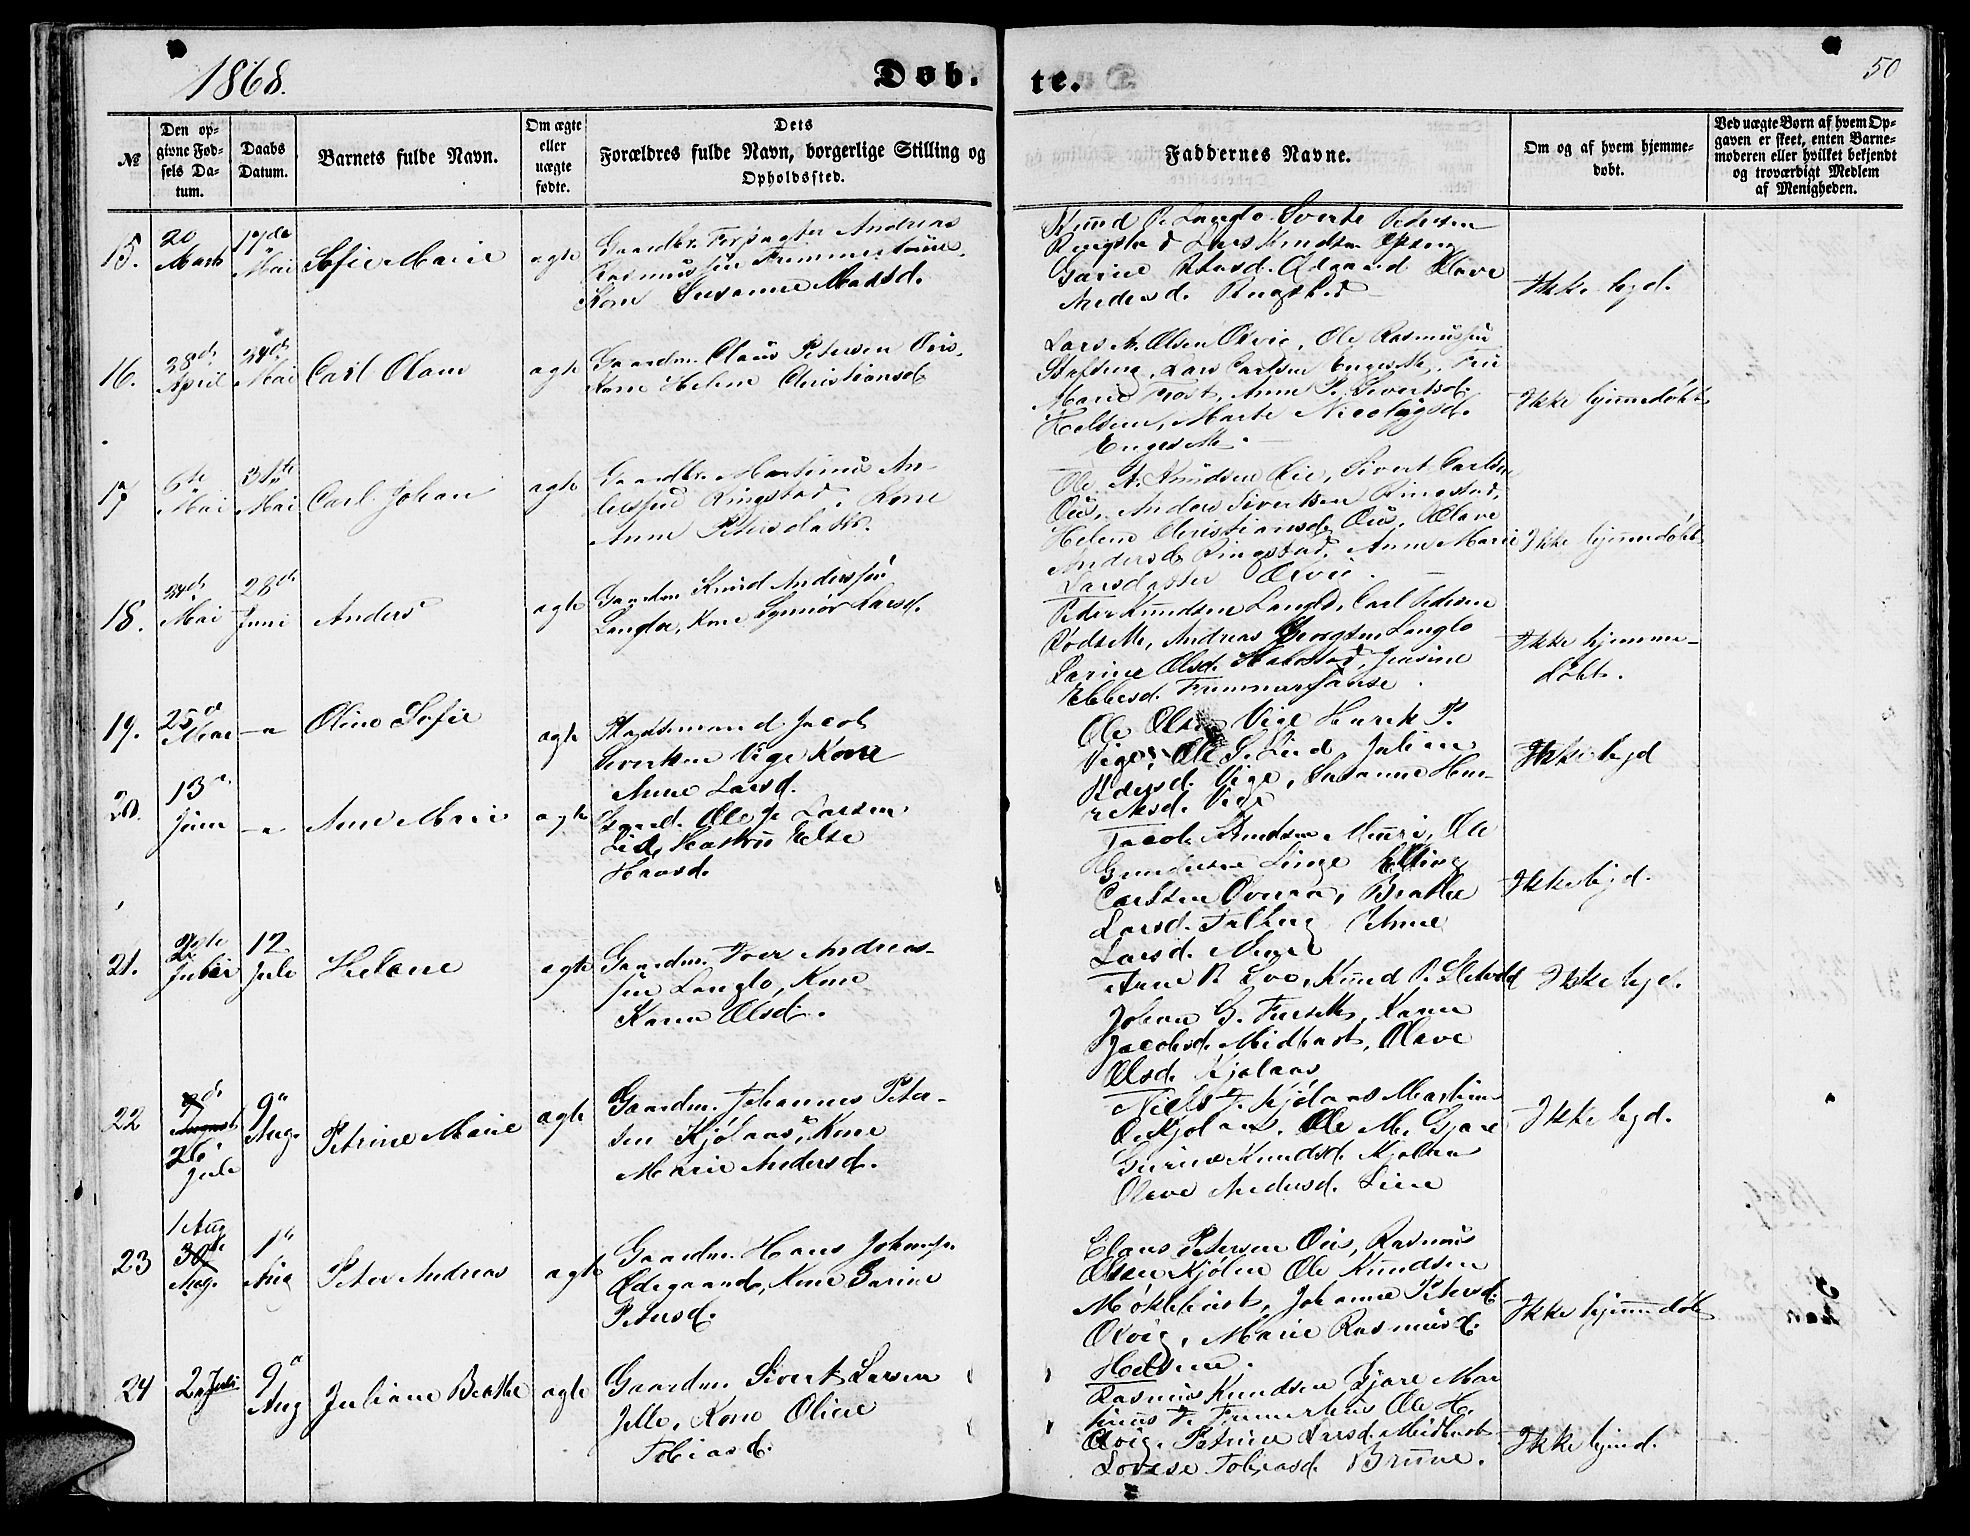 1868.
Døb-
te.
50
№
Den op-
givne Fød-
sels Da-
tum.
Daabs
Datum.
Barnets fulde Navn.
Om ægte
eller
uægte
fødte.
Dets
Forældres fulde Navn, borgerlige Stilling og
Opholdssted.
Faddernes Navne.
Om og af hvem hjemme-
døbt.
Ved uægte Børn af hvem Op-
gaven er skeet, enten Barne-
moderen eller hvilket bekjendt
og troværdigt Medlem
af Menigheden.
15.
20
Marts
17de
Mai
Sofie Marie
agte
Gaardbr. Forpagter Andreas
Rasmussen
Kone Susanne Madsd.
Knud P. Langlo Sverke Petersen
Ringstad Lars Knudsen
Olave
Andersd. Ringstad
Ikke hjd.
16.
28de
April
24de
Mai
Carl Olaus
agte
Gaardm. Claus Petersen Øvs,
Kone Helene Christiansd.
Lars A. Olsen Ovrie, Ole Rasmussen
Lars Carlsen Engeset,
Marie Frost, Anne P. Sivertsd.
Helsem, Marte Nicolaysd.
Engeset.
Ikke hjemmedøbt
17
6te
Mai
31te
Mai
Carl Johan
agte
Gaardbr. Martinus An-
dersen Ringstad, Kone
Anne Petersdatter.
Ole A. Knudsen Sivert Carlsen
Anders Sivertsen Ringstad,
Helene Christiansd. Olave
Andersd. Ringstad, Anne Marie
Larsdatter
Ikke hjemmedøbt.
18.
24de
Mai
28de
Juni
Anders
agte
Gaardm Knud Anderssen
Langlo, Kone Synnør Larsd.
Peder Knudsen Langlo, Carl Petersen
Rødset, Andreas Georgsen Langlo
Karine Olsd. Jensine
Ebbesd.
Ikke hjemme-
døbt.
19.
25de
Mai
—"
Oline Sofie
agte
Pladsemand Jacob
Sivertsen Vige Kone
Anne Larsd.
Ole Olsen Vige Henrik P.
Vige, Ole S. Lied, Juliane
Vige, Susanne Hen-
riksd. Vige
Ikke hjd
20.
13de
Juni
—"
Ane Marie
agte
Gaard. Ole J. Larsen
Lid, Hustru Else
Hansd.
Jacob Knudsen Muri, Ole
Gundersen Linge Elling
Carlsen Overaa, Beathe
Larsd. Anne
Larsd.
Ikke hjd.
21.
Juli
12
Juli
Helene
agte
Gaardm. Iver Andreas-
sen Langlo, Kone
Karen Olsd.
Arne R. Knud P.
Johan G. Karen
Jacobsd. Midbøst, Olave
Olsd. Kjølaas
Ikke hjd.
22
26
Juli
9de
Aug.
Petrine Marie
agte
Gaardm. Johannes Peter-
sen Kjølaas, Kone
Marie Andersd.
Niels J. Kjølaas Martin
O. Kjølaas, Ole M. Gjære
Gurine Knudsd. Kjølaas
Olave Andersd. Liene
Ikke hjd.
23
1 Aug
30te
Aug.
1"
Aug
Peter Andreas
agte
Gaardm. Hans Johans.
Ødegaard, Kone Gurine
Petersd.
Claus Petersen Øvs, Rasmus
Olsen Kjølen Ole Knudsen
Møklebust, Johanne Petersd.
Ovig, Marie Rasmusd.
Helsem.
Ikke hjemmedøbt
24
2 Juli
9de
Aug
Juliane Beathe
agte
Gaardm. Sivert Larsen
Jelle, Kone Oline
Tobiasd.
Rasmus Knudsen Gjære Mar
tinus Ole H.
Ovig, Petrine Larsd. Midbøst
Lovise Tobiasd. Brune.
Ikke hjmd.